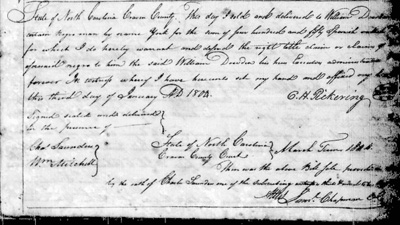 State of North Carolina Craven County. This day I sold and delivered to William
certain negro man by name York for the sum of four hundred and fifty Spanish milled
for which I do hereby warrant and defend the right title claim or claims of
aforesaid negro to him the said William his Executors administrators
forever In witness whereof I have hereunto set my hand and affixed my
this third day of January AD 1803.
C. A. Pickering
Signed sealed and delivered
in the presence of
Chas Saunders
Wm Mitchell
State of North Carolina
Craven County Court
March Term 1804
Then was the above Bill of Sale proved
by the oath of Charles Saunders one of the subscribing
Attest Saml. Chapman